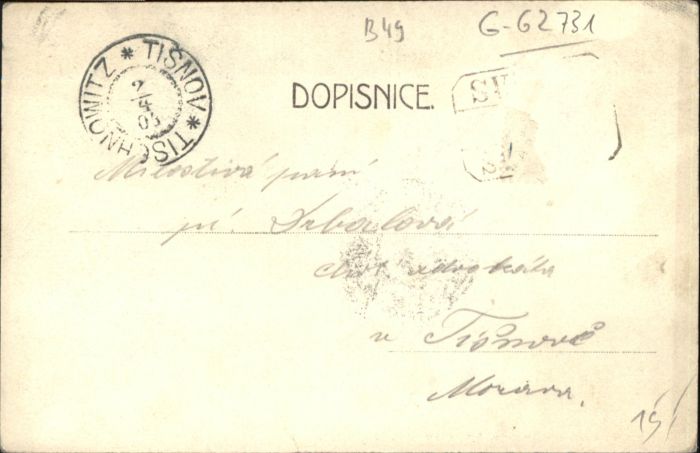 B49
G-G2731
TIŠNOV * TISCHNOWITZ *
2/4
03
DOPISNICE.
Milostivá paní
pí. Drbalová
advokáta
v Tišnově
Morava.
15/